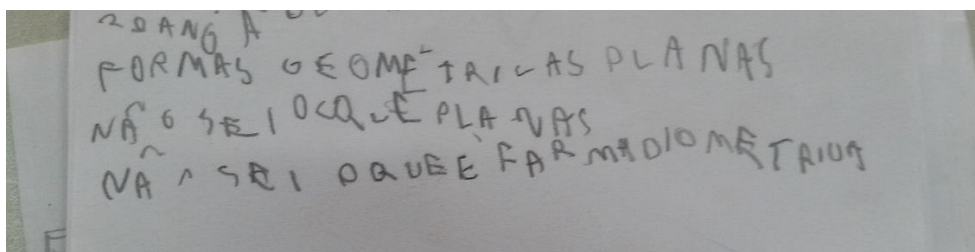 FORMAS GEOMÉTRICAS PLANAS
NÃO SEI OCQUE PLANAS
NÃO SEI OQUE É FARMADIOMETRIUA